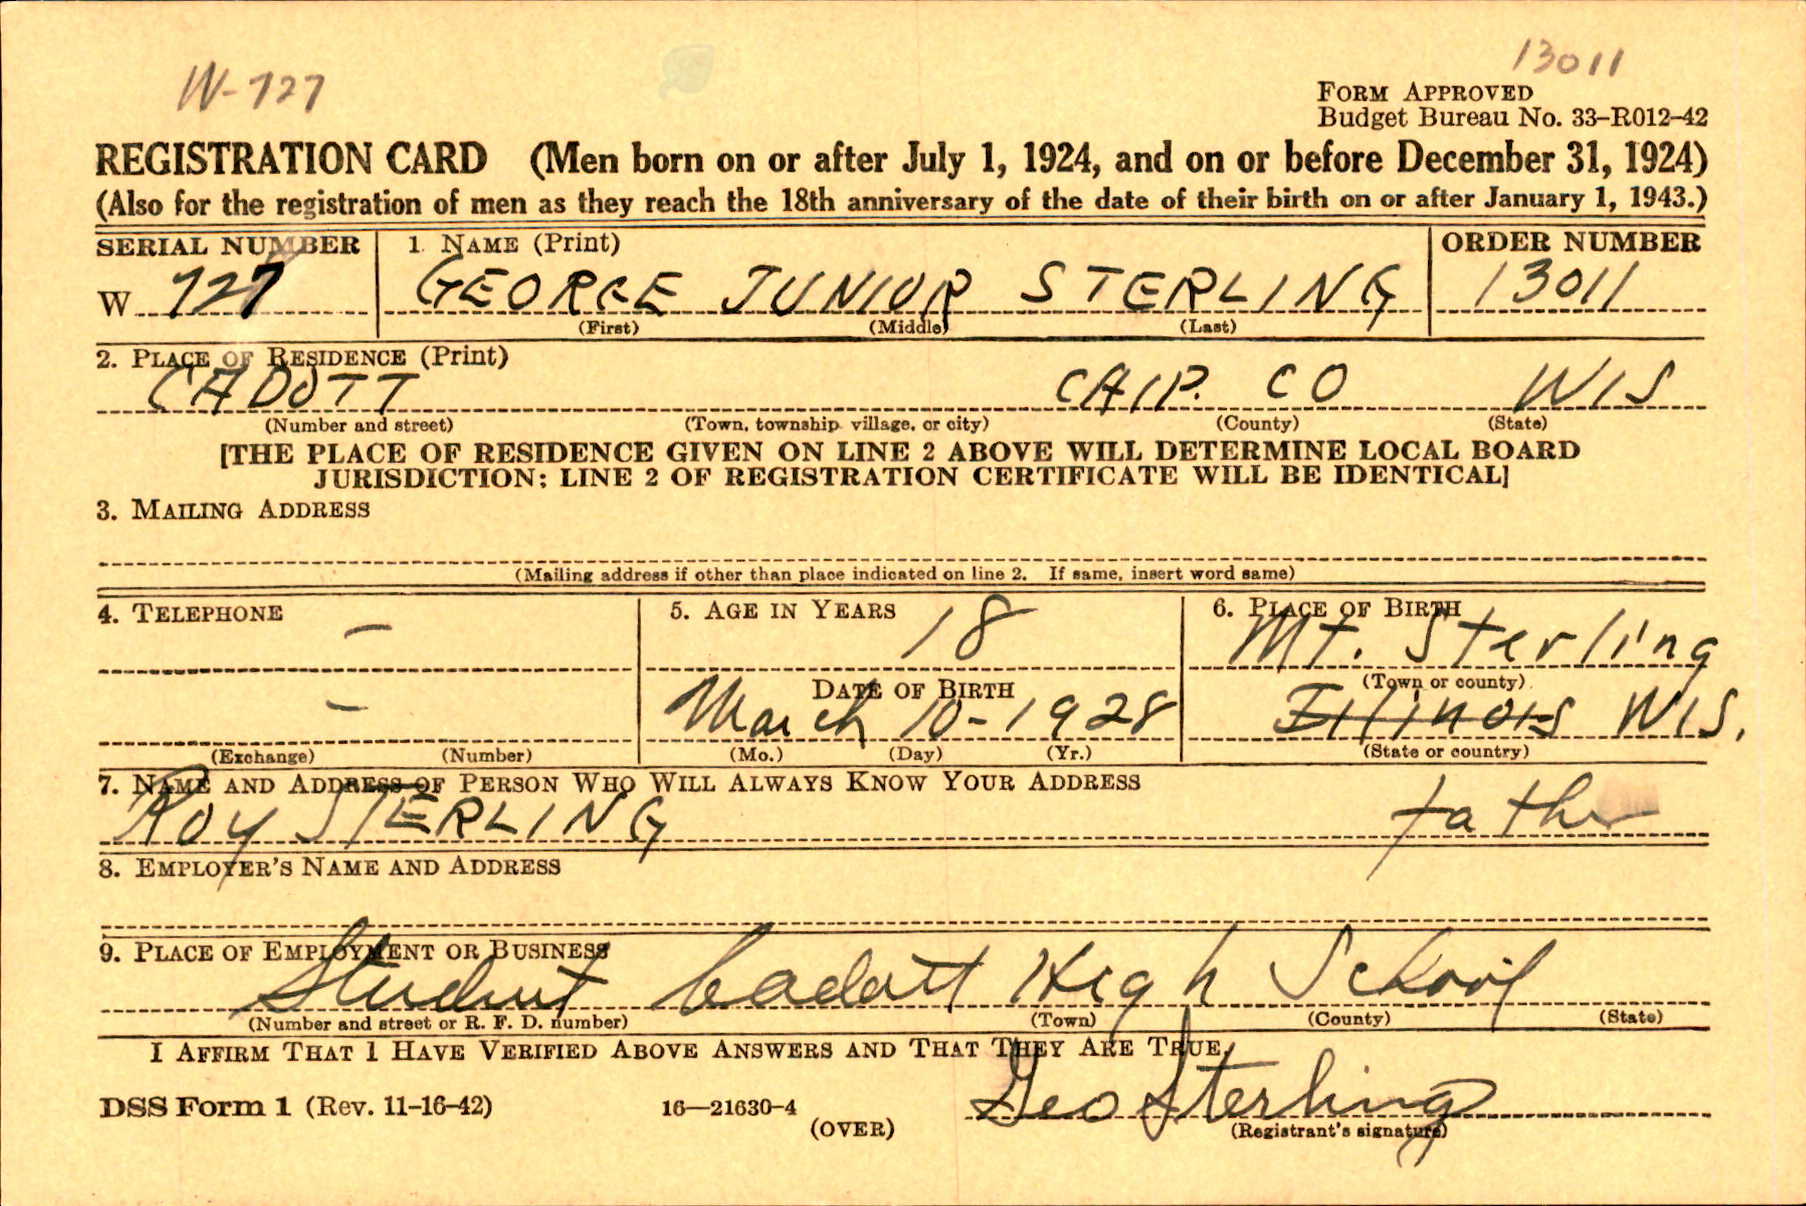 W-727
13011
FORM APPROVED
Budget Bureau No. 33-R012-42
REGISTRATION CARD (Men born on or after July 1, 1924, and on or before December 31, 1924)
(Also for the registration of men as they reach the 18th anniversary of the date of their birth on or after January 1, 1943.)
SERIAL NUMBER 1. NAME (Print) ORDER NUMBER
W 727 GEORGE JUNIOR STERLING 13011
(First) (Middle) (Last)
2. PLACE OF RESIDENCE (Print)
CADOTT CHIP. CO WIS
(Number and street) (Town, township, village, or city) (County) (State)
[THE PLACE OF RESIDENCE GIVEN ON LINE 2 ABOVE WILL DETERMINE LOCAL BOARD
JURISDICTION; LINE 2 OF REGISTRATION CERTIFICATE WILL BE IDENTICAL]
3. MAILING ADDRESS
(Mailing address if other than place indicated on line 2. If same, insert word same)
4. TELEPHONE 5. AGE IN YEARS 6. PLACE OF BIRTH
— 18 Mt. Sterling
DATE OF BIRTH (Town or county)
— March 10-1928 Illinois WIS.
(Exchange) (Number) (Mo.) (Day) (Yr.) (State or country)
7. NAME AND ADDRESS OF PERSON WHO WILL ALWAYS KNOW YOUR ADDRESS
ROY STERLING father
8. EMPLOYER'S NAME AND ADDRESS
9. PLACE OF EMPLOYMENT OR BUSINESS
Student Cadott High School
(Number and street or R. F. D. number) (Town) (County) (State)
I AFFIRM THAT I HAVE VERIFIED ABOVE ANSWERS AND THAT THEY ARE TRUE.
DSS Form 1 (Rev. 11-16-42) 16—21630-4 Geo Sterling
(OVER) (Registrant's signature)